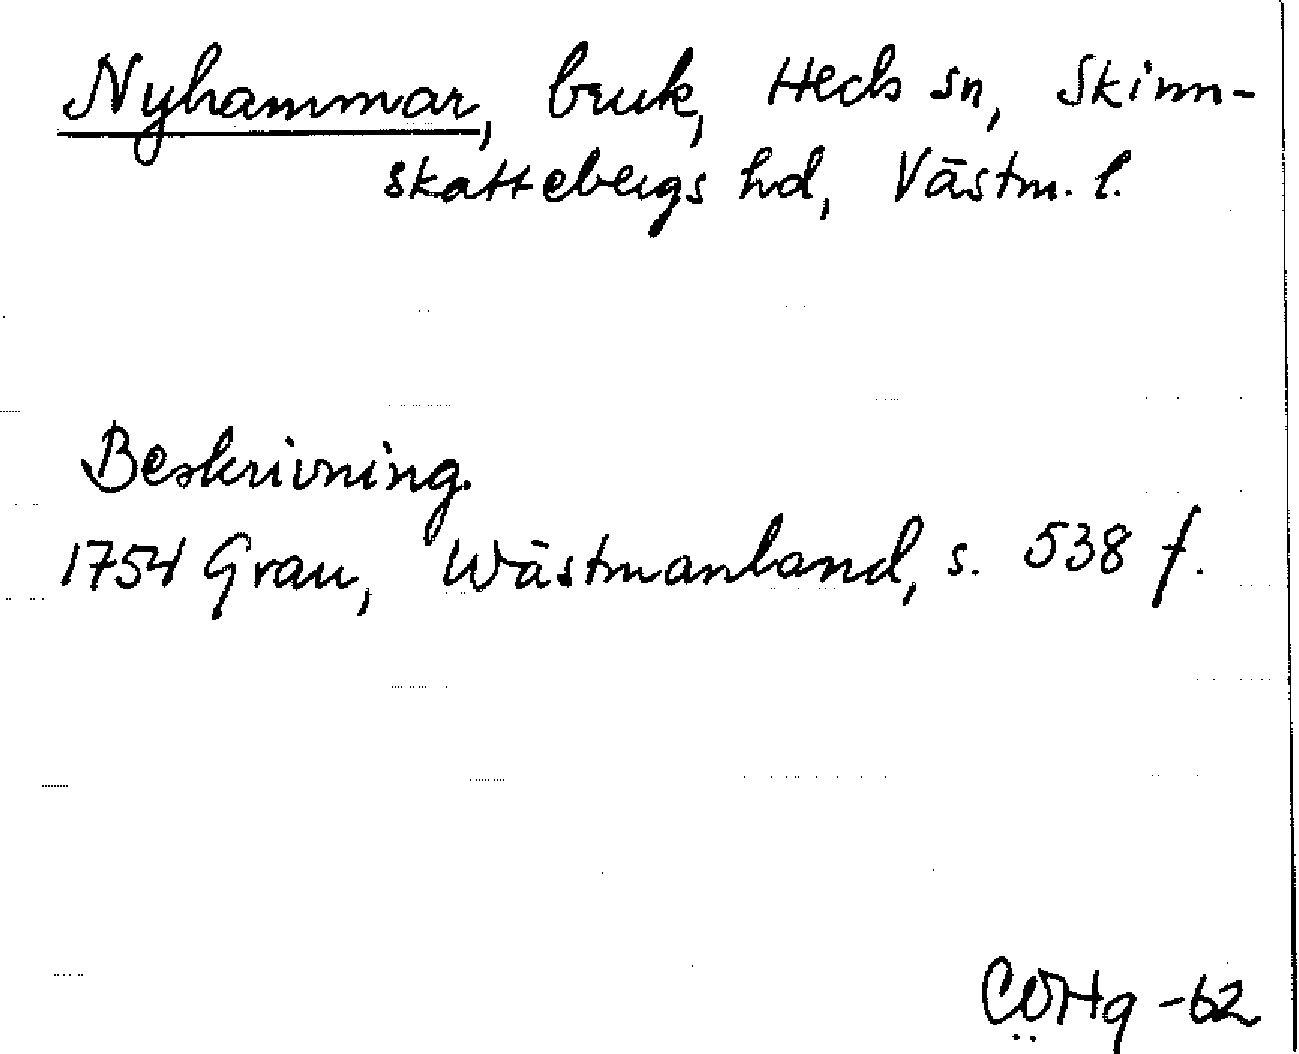 Nyhammar, bruk, Heds sn, Skinn-
skattebergs hd, Västm. l.
Beskrivning.
1754 Grau, Wästmanland, s. 538 f.
-62